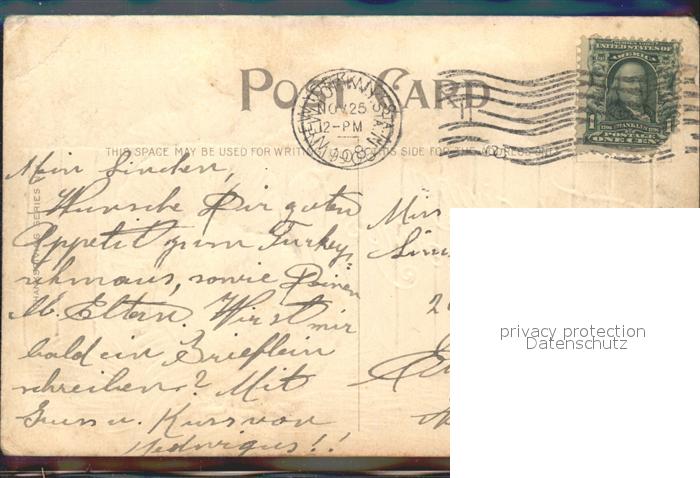 POST CARD
NEW YORK, N.Y. STA. N
NOV 25
12-PM
1908
UNITED STATES OF
AMERICA
1 FRANKLIN 1
POSTAGE
ONE CENT
THIS SPACE MAY BE USED FOR WRITING THIS SIDE FOR THE ADDRESS ONLY
THANKSGIVING SERIES
Mein Linchen,
Wünsche Dir guten
Appetit zum Turkey=
schmaus, sowie Deinen
lb. Eltern. Wirst mir
bald ein Brieflein
schreiben? Mit
Gruss u. Kuss von
Hedwigus!!
Miss
2
privacy protection
Datenschutz